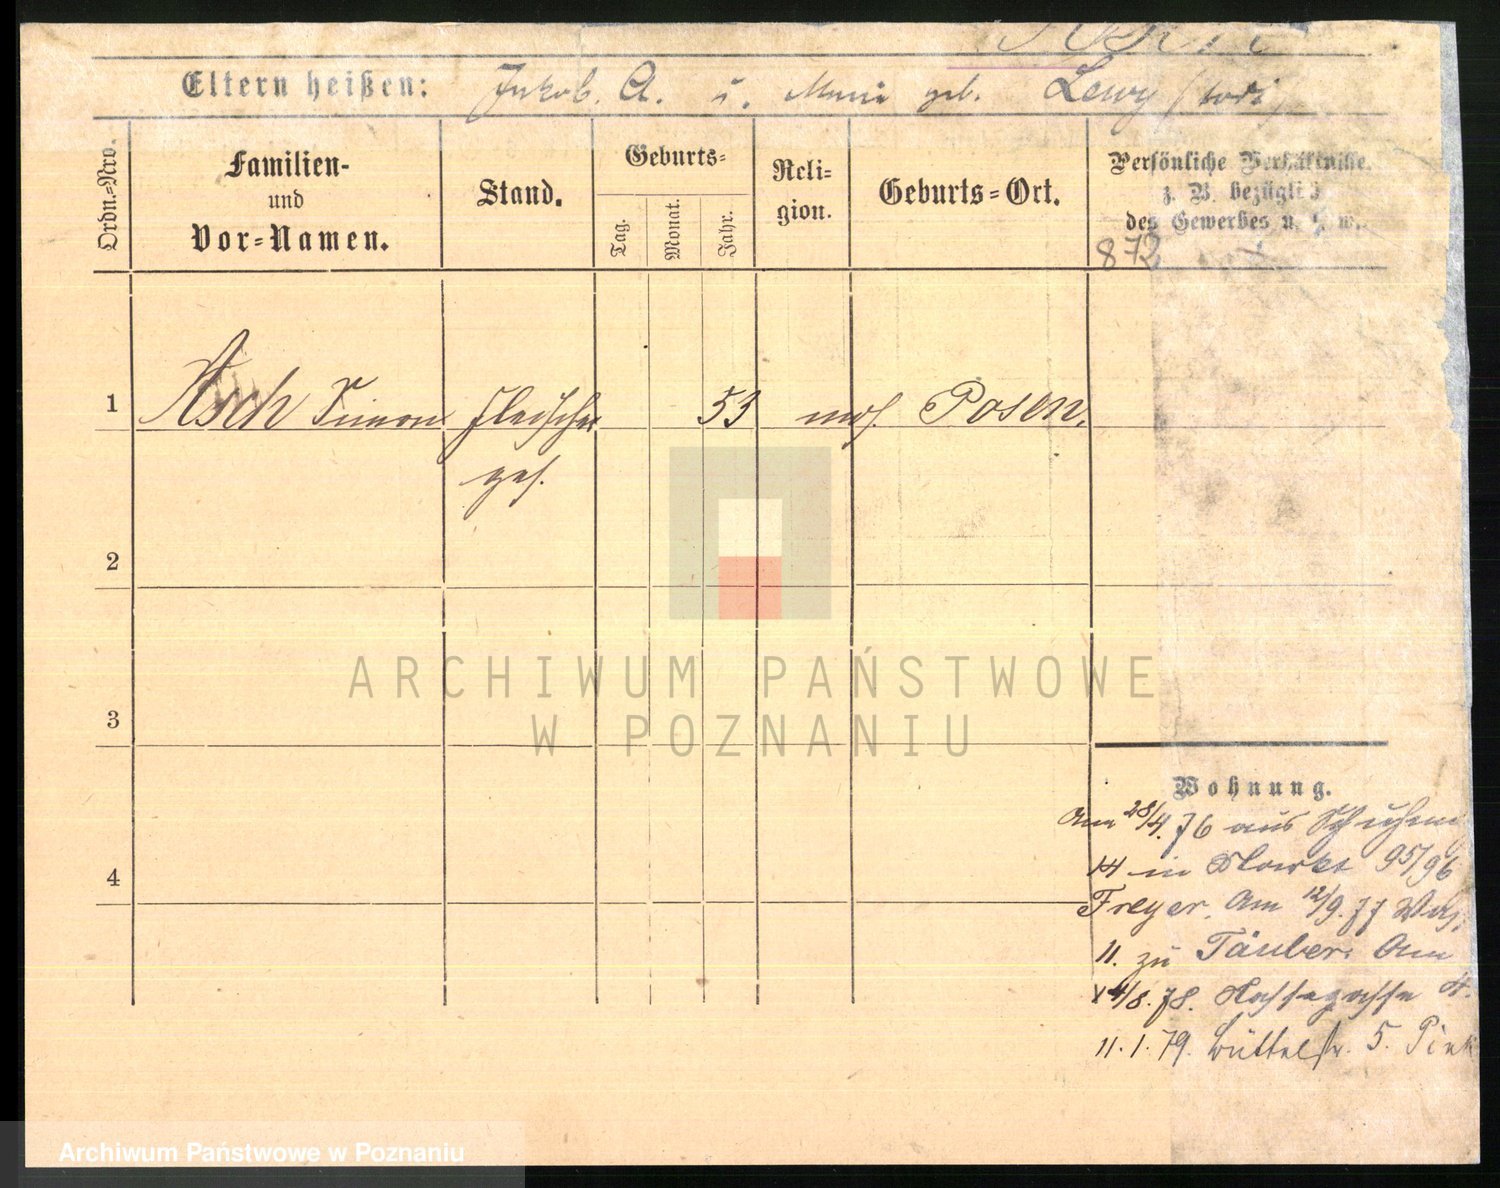 Eltern heißen: Jakob. A. u. Marie geb. Lewy (tod)
Ordn.-Nro.
Familien-
und
Vor-Namen.
Stand.
Geburts-
Tag.
Monat.
Jahr.
Reli-
gion.
Geburts-Ort.
Persönliche Verhältnisse
z. B. bezüglich
des Gewerbes u. s. w.
872
1 Asch Simon Fleischer 53 mos. Posen.
ges.
2
3
4
Wohnung.
Am 28/4. 76 aus
14 in Markt 95/96
Freyer. Am 12/9. 77
11. zu Täuber. Am
4/8. 78. 4.
11. 1. 79. Büttelstr. 5.
ARCHIWUM PAŃSTWOWE
W POZNANIU
Archiwum Państwowe w Poznaniu